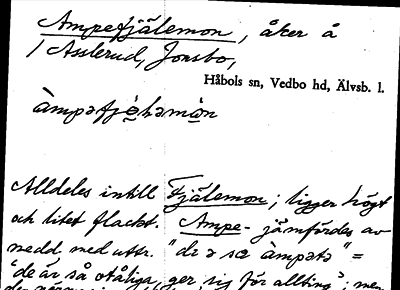 Ampefjälemon, åker å
/ Asslerud, Jonsbo,
Håbols sn, Vedbo hd, Älvsb. l.
àmpəfjo̱ləmo̱n
Alldeles intill Fjälemon; ligger högt
och litet flackt. Ampe- jämfördes av
medd. med uttr. "de ə sɷ àmpətə" =
"de är så otåliga, ger sig för allting"; men